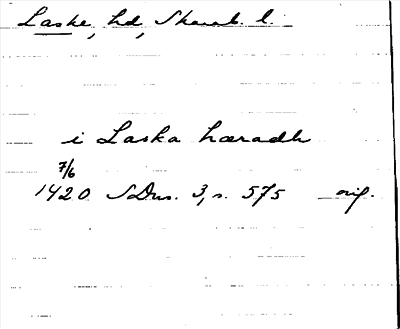 Laske, hd, Skarab. l.
i Laska hæradh
7/6
1420 SDns. 3, s. 575 orig.